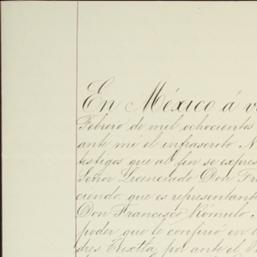 En México á
Febrero de mil ochocientos
ante mí el infrascrito N
testigos que al fin se expres
Señor Licenciado Don Fra
ciendo que es representant
Don Francisco Rómulo
poder que le confirió en
por ante el